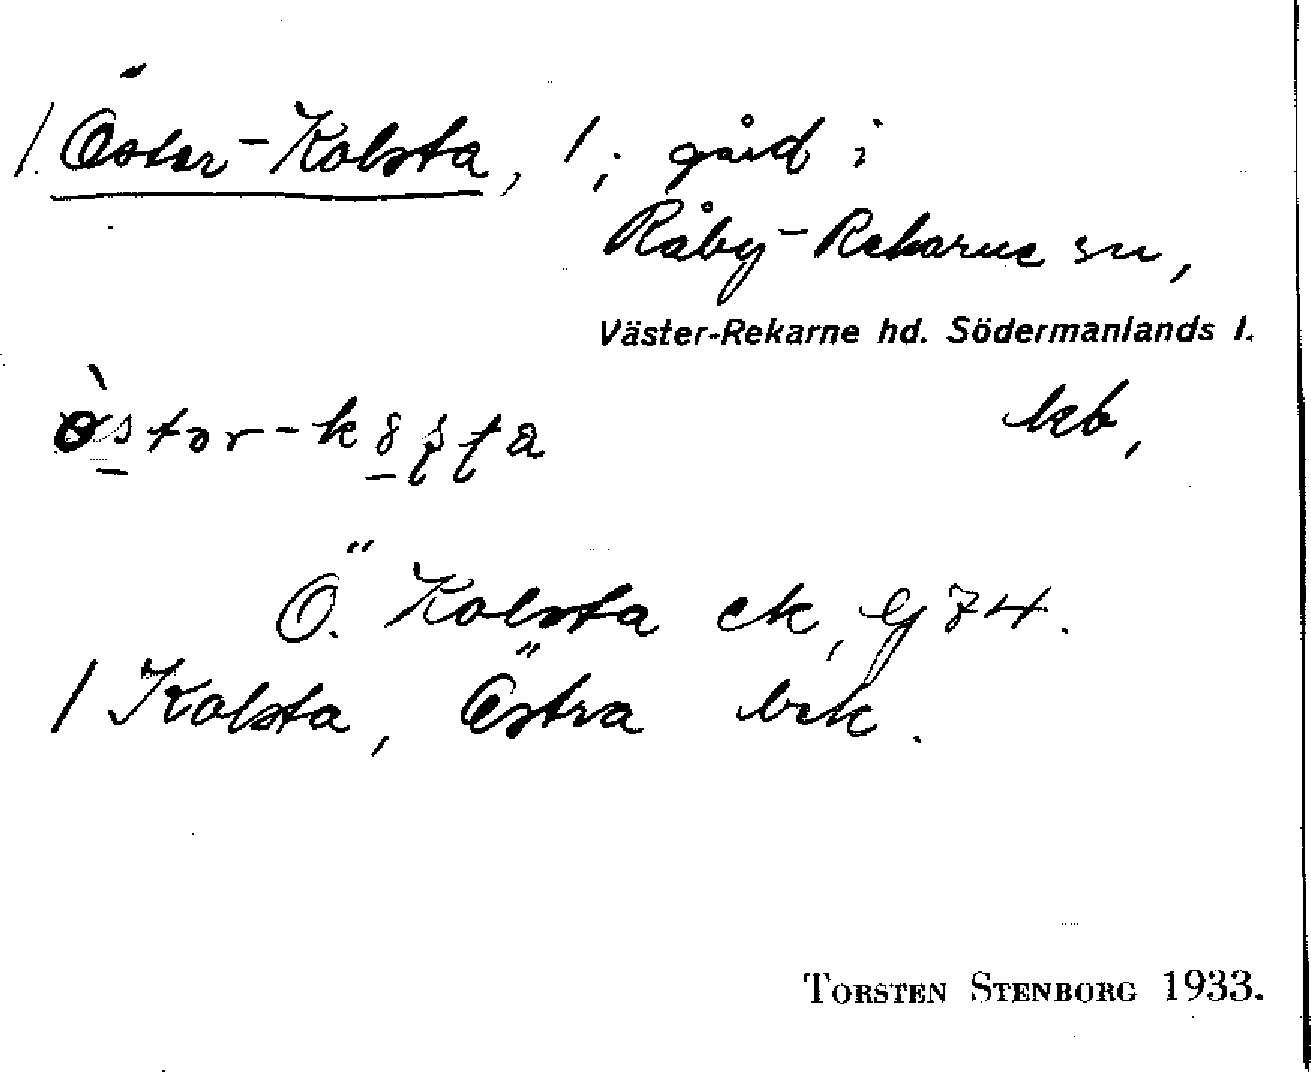 1. Öster-Kolsta, 1; gård i
Råby-Rekarne sn,
Väster-Rekarne hd. Södermanlands l.
kb,
Ö. Kolsta ek, Gj 74.
1 Kolsta, Östra brk.
TORSTEN STENBORG 1933.